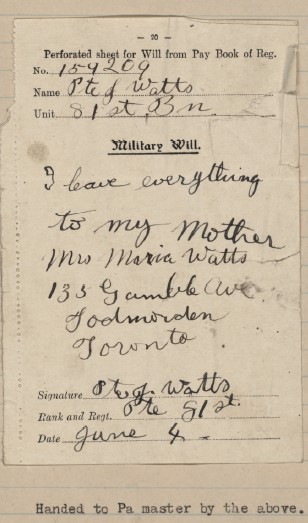 - 20 -
Perforated sheet for Will from Pay Book of Reg.
No. 159209
Name Pte J Watts
Unit 81st, Bn
Military Will.
I leave everything
to my Mother
Mrs Maria Watts
135 Gamble Ave.
Todmorden
Toronto
Signature Pte J. Watts
Rank and Regt. Pte 81st.
Date June 4
Handed to Pa master by the above.